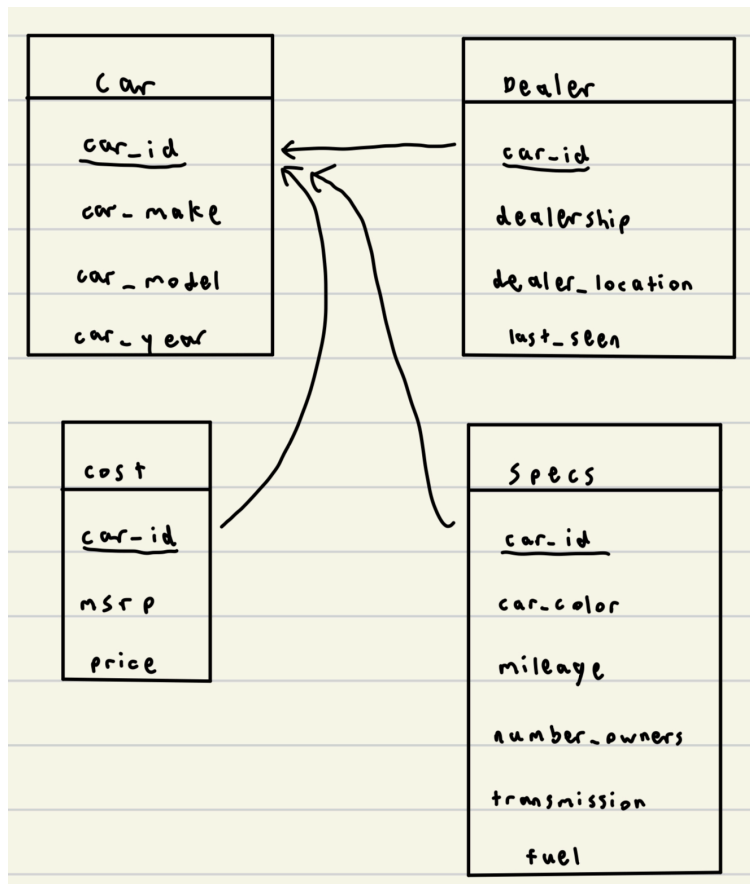 Car
car_id
car_make
car_model
car_year
Dealer
car_id
dealership
dealer_location
last_seen
cost
car_id
msrp
price
Specs
car_id
car_color
mileage
number_owners
transmission
fuel